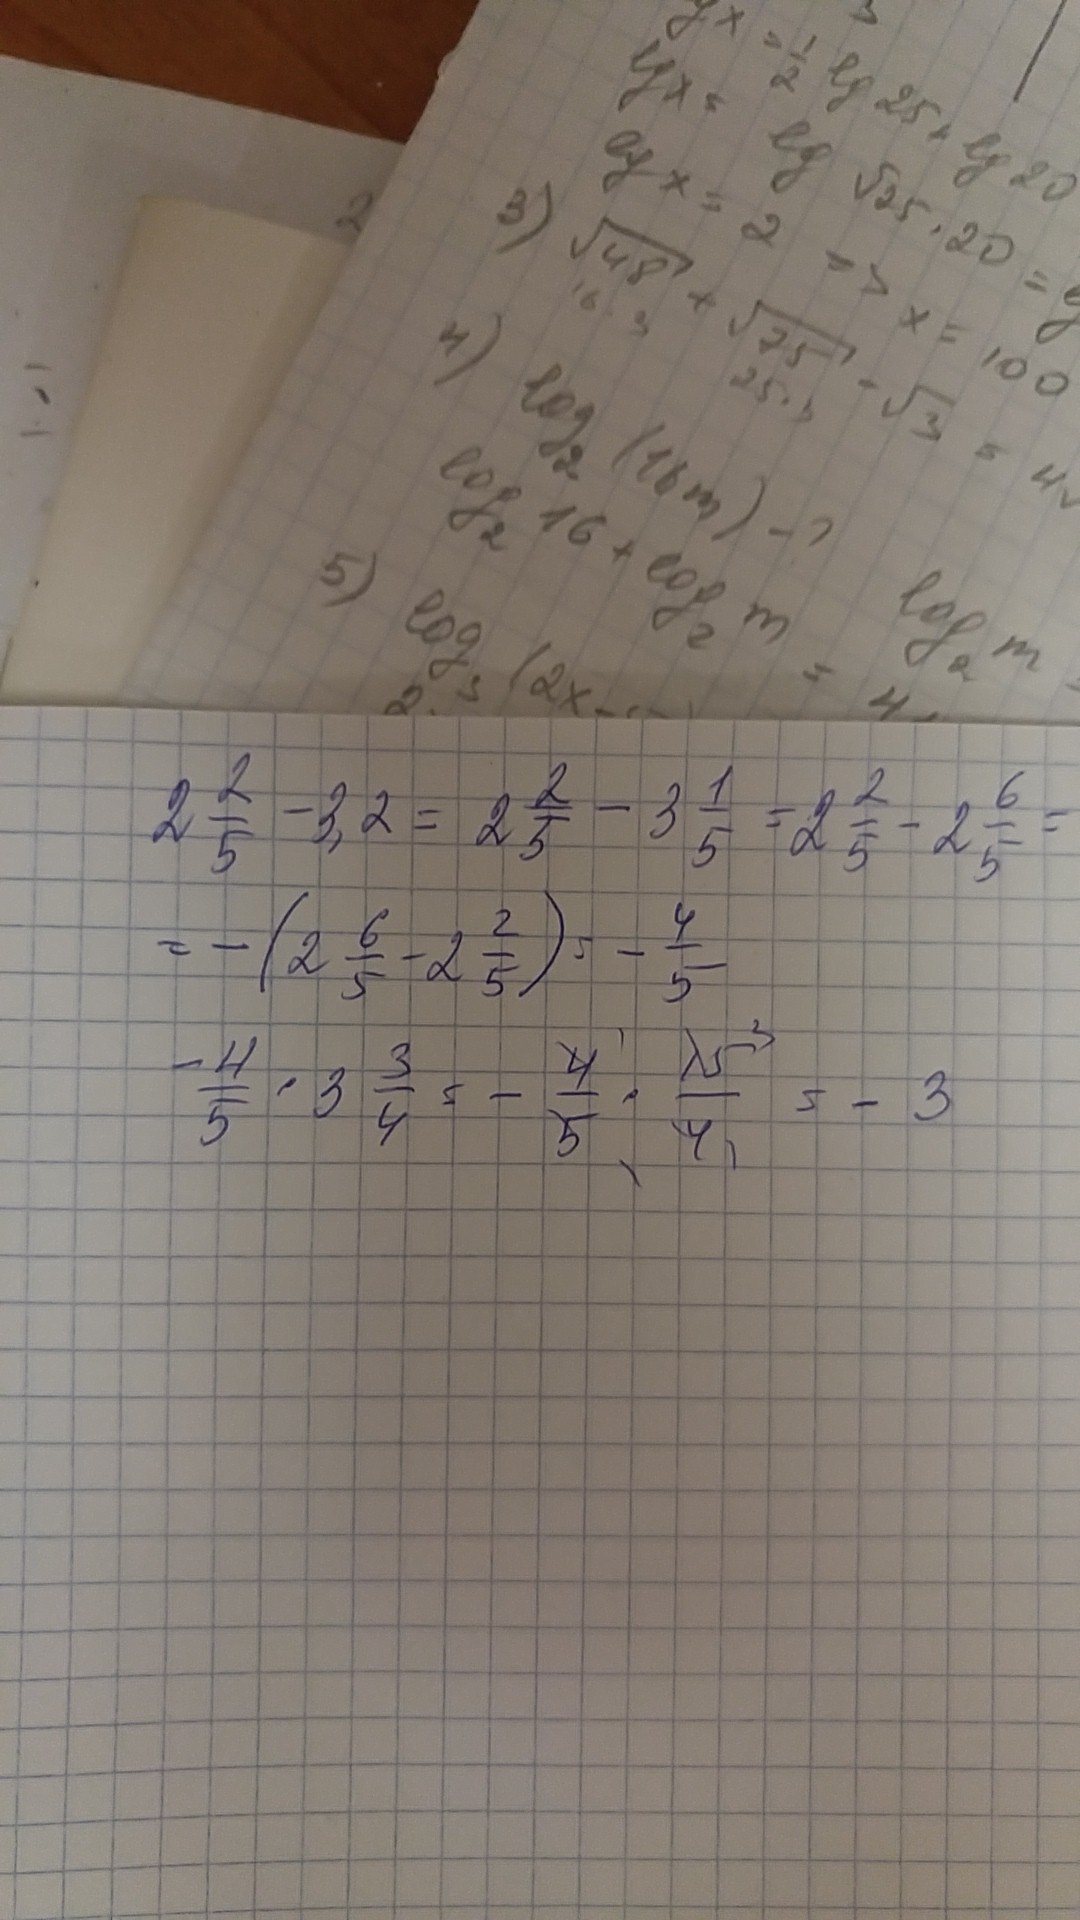 lg x = 1/2 lg 25 + lg 20
lg x = lg √25 · 20 =
lg x = 2 => x = 100
3) √48 + √75 - √3 = 4
16·3 25·3
4) log₂ (16m) -> log₂ m
log₂ 16 + log₂ m = 4
5) log₃ (2x
2 2/5 - 3,2 = 2 2/5 - 3 1/5 = 2 2/5 - 2 6/5 =
= - (2 6/5 - 2 2/5) = - 4/5
-4/5 · 3 3/4 = - 4/5 · 15/4 = - 3